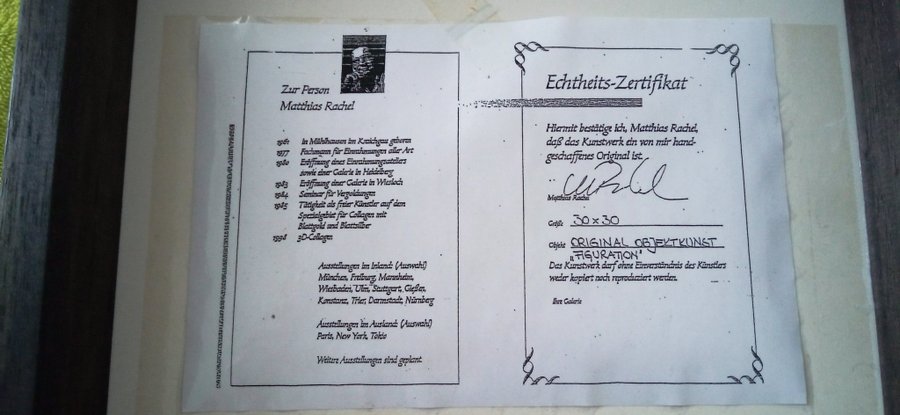 Zur Person
Matthias Rachel
1961 in Mühlhausen im Kraichgau geboren
1977 Fachmann für Einrahmungen aller Art
1980 Eröffnung eines Einrahmungsateliers
sowie einer Galerie in Heidelberg
1983 Eröffnung einer Galerie in Wiesloch
1984 Seminar für Vergoldungen
1985 Tätigkeit als freier Künstler auf dem
Spezialgebiet für Collagen mit
Blattgold und Blattsilber
1998 3D-Collagen
Ausstellungen im Inland: (Auswahl)
München, Freiburg, Mannheim,
Wiesbaden, Ulm, Stuttgart, Gießen,
Konstanz, Trier, Darmstadt, Nürnberg
Ausstellungen im Ausland: (Auswahl)
Paris, New York, Tokio
Weitere Ausstellungen sind geplant
Echtheits-Zertifikat
Hiermit bestätige ich, Matthias Rachel,
daß das Kunstwerk ein von mir hand-
geschaffenes Original ist.
Matthias Rachel
Größe 30 x 30
Objekt ORIGINAL OBJEKTKUNST
„FIGURATION"
Das Kunstwerk darf ohne Einverständnis des Künstlers
weder kopiert noch reproduziert werden.
Ihre Galerie